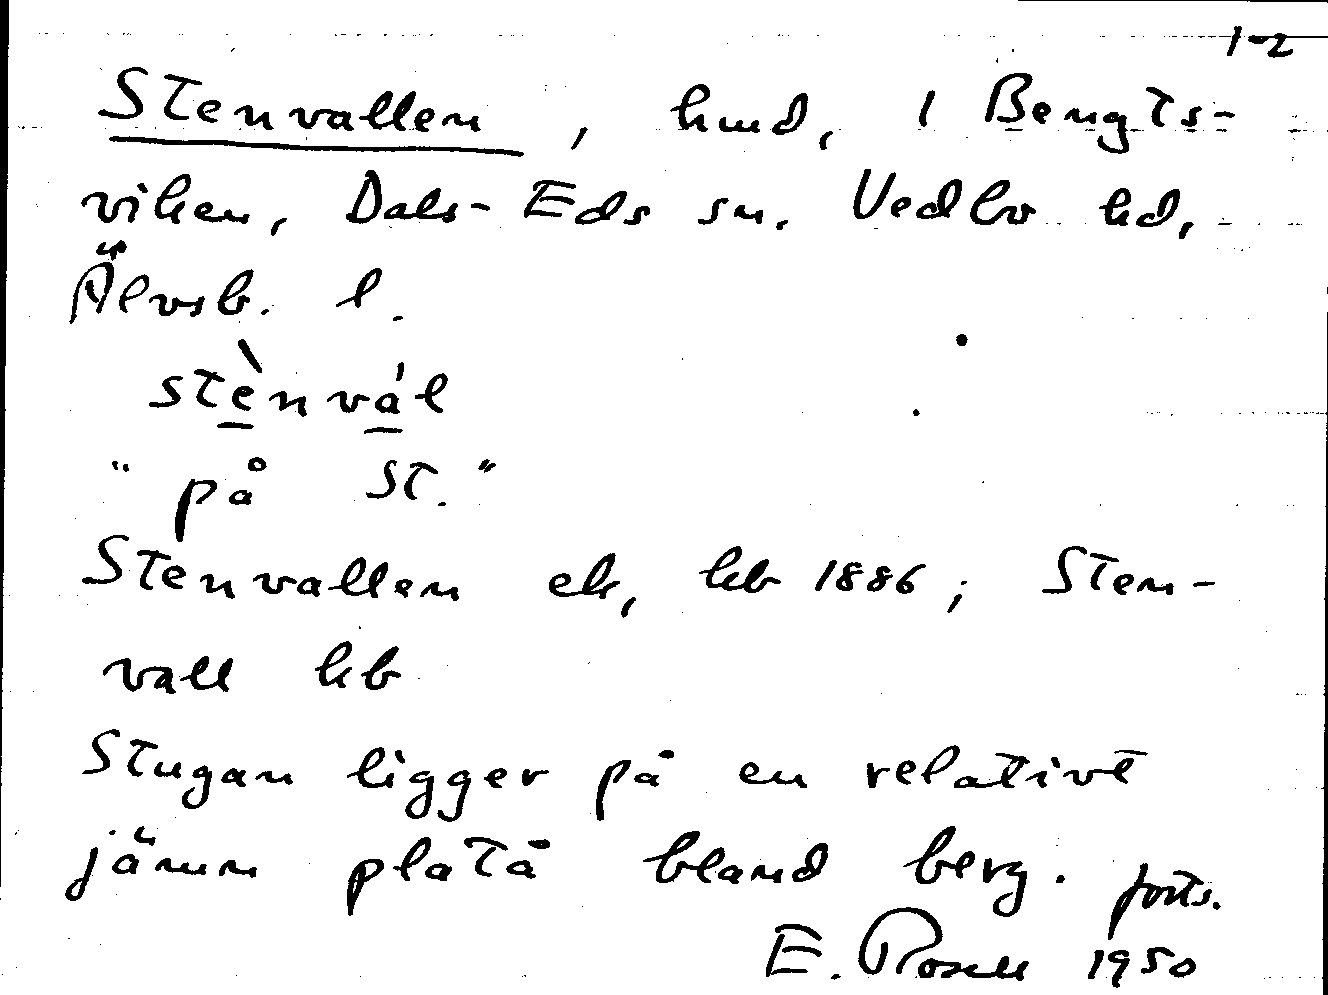 1-2
Stenvallen, hmd, 1 Bengts-
viken, Dals-Eds sn. Vedbo hd,
Älvsb. l.
stènvál
"på St."
Stenvallen ek, kb 1886; Sten-
vall kb
Stugan ligger på en relativt
jämn platå bland berg. forts.
E. Rosell 1950